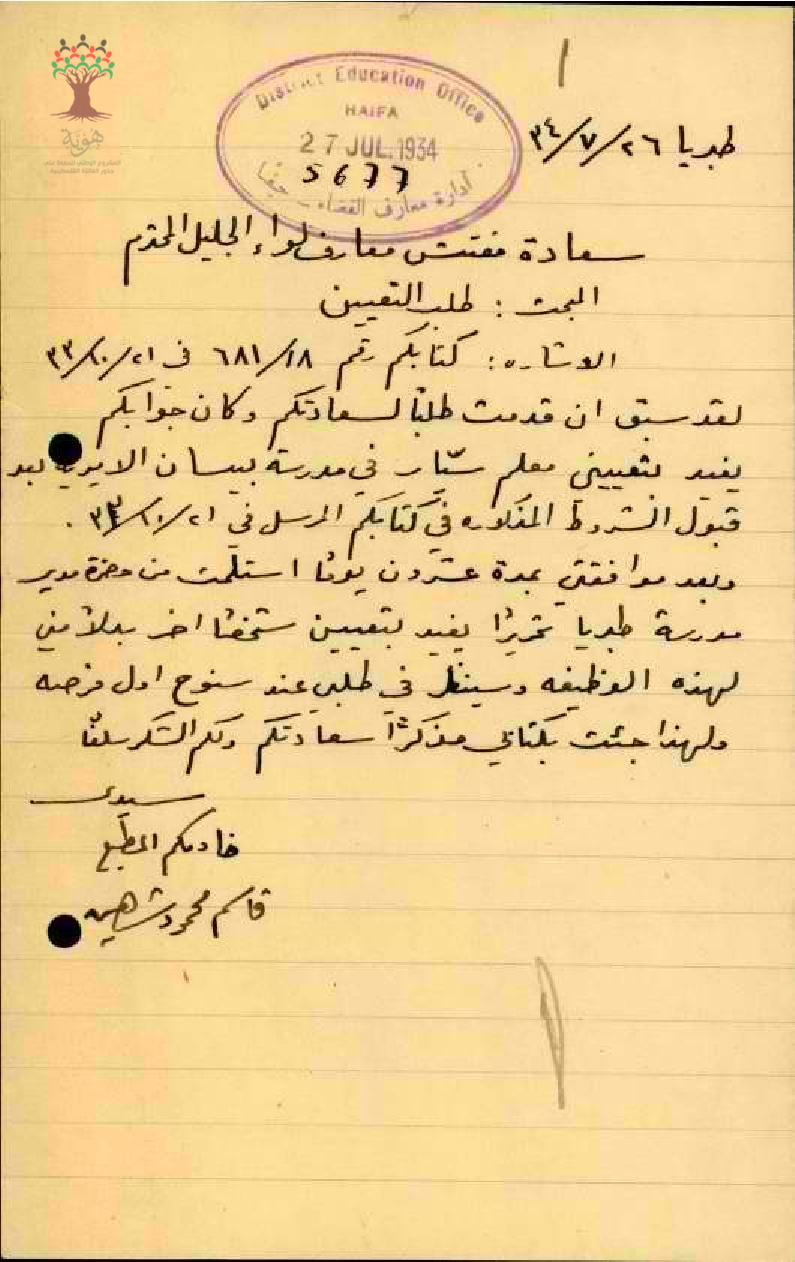 هوية
District Education Office
HAIFA
27 JUL. 1934
5677
أدارة معارف القضاء - حيفا
طبريا ٢٦/٧/٣٤
سعادة مفتش معارف لواء الجليل المحترم
البحث : طلب التعيين
الاشاره : كتابكم رقم ٦٨١/١٨ في ٢١/١٠/٣٣
لقد سبق ان قدمت طلبًا لسعادتكم وكان جوابكم
يفيد بتعييني معلم سيّار في مدرسة بيسان الاميرية بعد
قبول الشروط المذكوره في كتابكم المرسل في ٢١/١٠/٣٣ .
وبعد موافقتي بمدة عشرون يومًا استلمت من حضرة مدير
مدرسة طبريا تحريرًا يفيد بتعيين شخصًا اخر بدلًا مني
لهذه الوظيفه وسينظر في طلبي عند سنوح اول فرصه
ولهذا جئت بكتابي مذكرًا سعادتكم ولكم الشكر سلفًا
سيدي
خادمكم المطيع
قاسم محمود شاهين